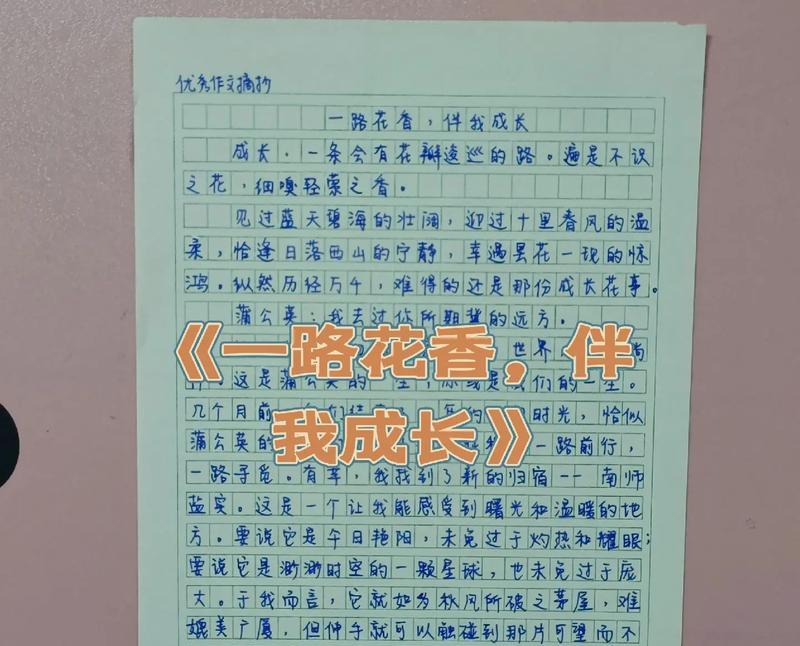 优秀作文摘抄
一路花香，伴我成长
成长，一条会有花瓣逡巡的路。遍是不识
之花，细嗅轻萦之香。
见过蓝天碧海的壮阔，迎过十里春风的温
柔，恰逢日落西山的宁静，幸遇昙花一现的惊
鸿。纵然历经万千，难得的还是那份成长花事。
蒲公英：我去过你所期冀的远方。
《一路花香，伴
我成长》
世界
这是蒲公英的一生，
们的一生。
几个月前
时光，恰似
蒲公英的
一路前行，
一路寻觅。有幸，我找到了新的归宿--南师
盐实。这是一个让我能感受到曙光和温暖的地
方。要说它是午日艳阳，未免过于灼热和耀眼；
要说它是渺渺时空的一颗星球，也未免过于庞
大。于我而言，它就如为秋风所破之茅屋，难
媲美广厦，但伸手就可以触碰到那片可望而不